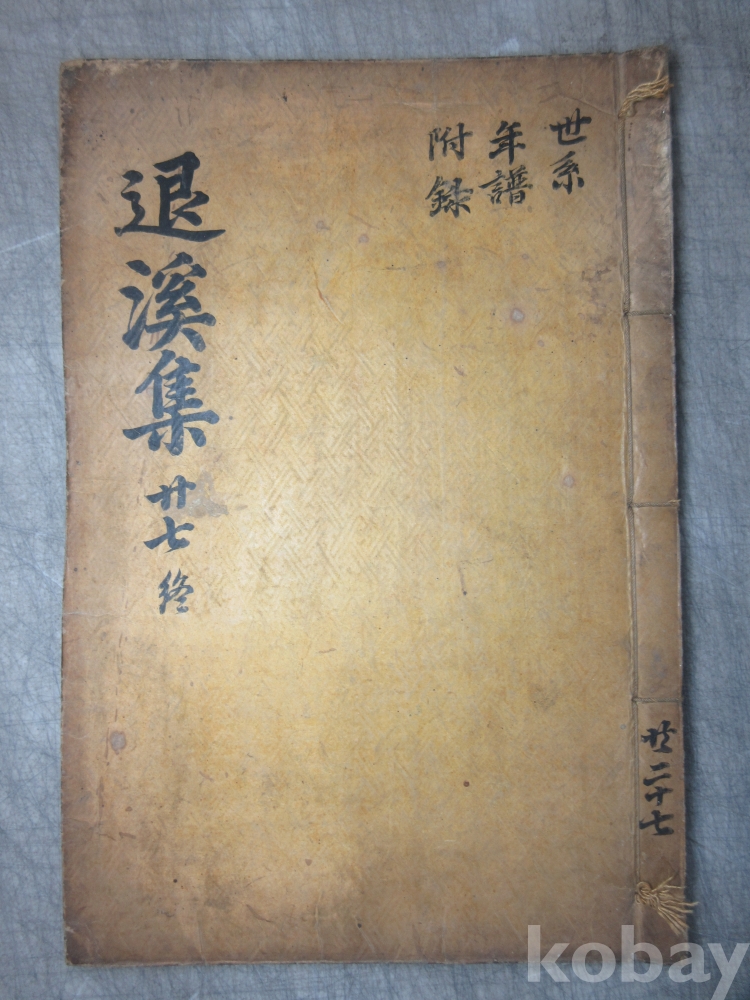 世系
年譜
附錄
退溪集 廿七 終
共二十七
kobay